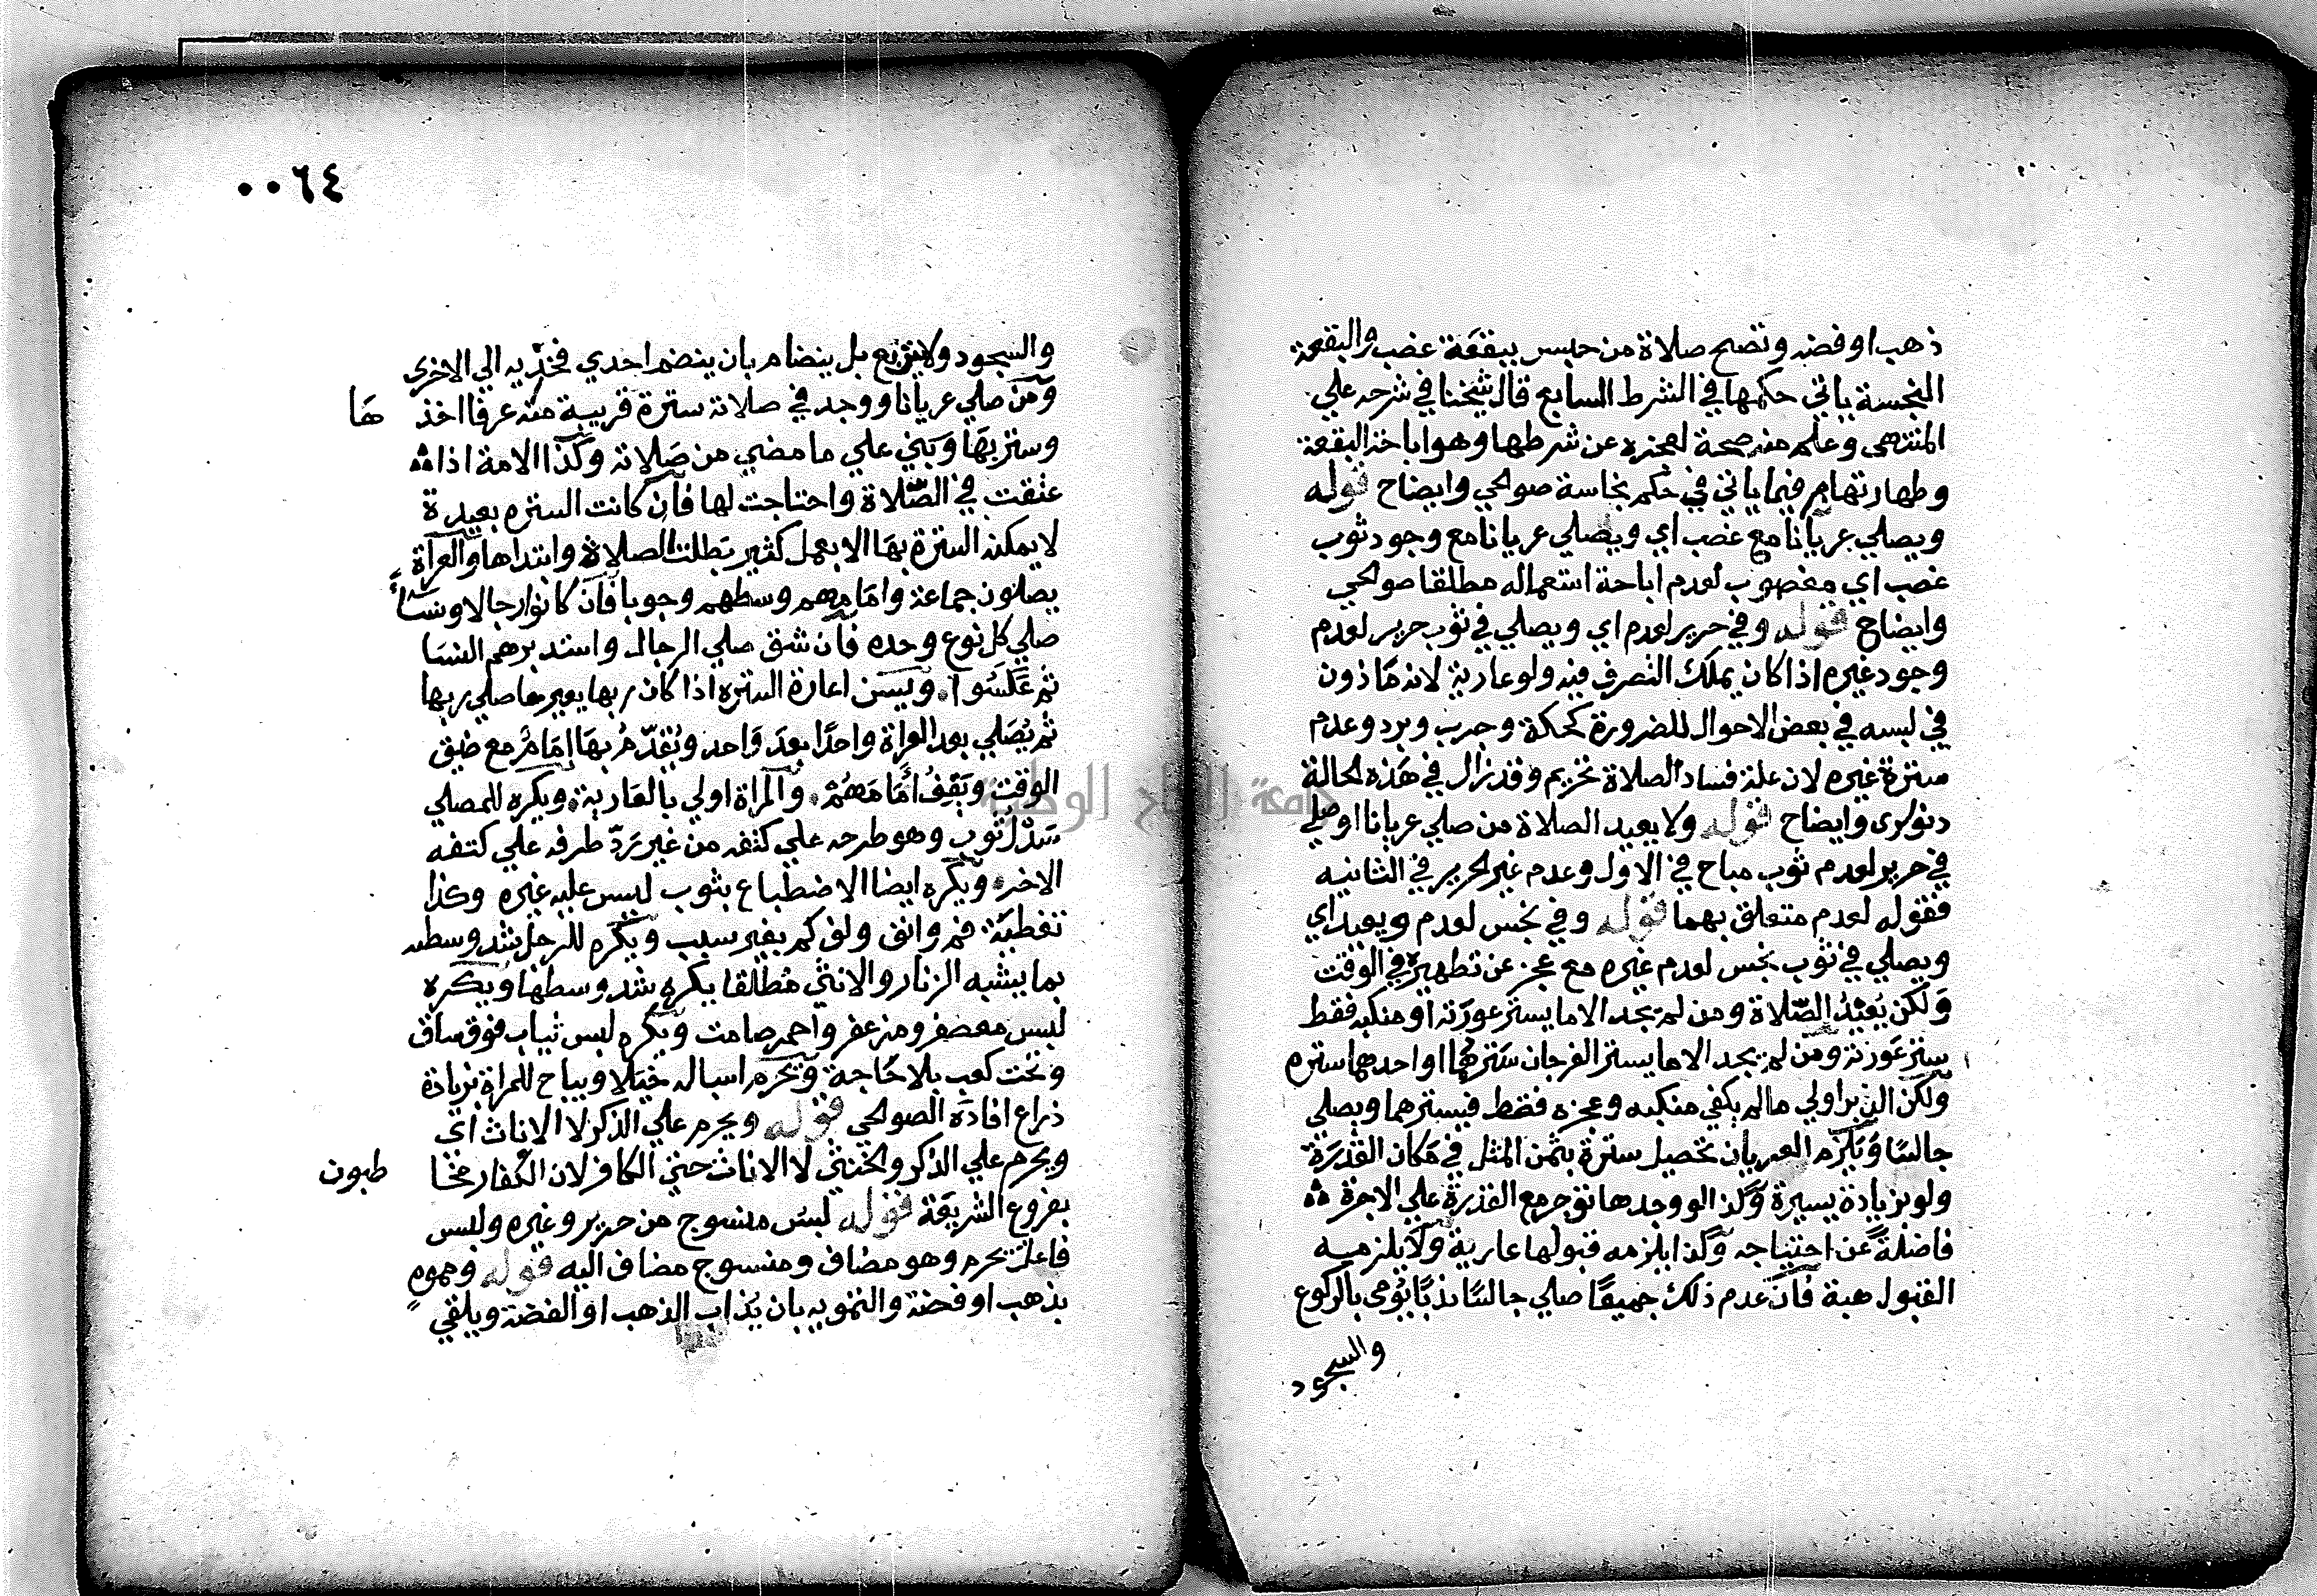 ذهب او فضه وتصح صلاة من حبس ببقعة غصب والبقعة
النجسة ياتي حكمها في الشرط السابع قال شيخنا في شرحه علي
المنتهى وعلم منه صحة لعجزه عن شرطها وهو اباحة البقعة
وطهارتها مر فيما ياتي في حكم نجاسة صوالحي وايضاح قوله
ويصلي عريانا مع غصب اي ويصلي عريانا مع وجود ثوب
غصب اي مغصوب لعدم اباحة استعماله مطلقا صوالحي
وايضاح قوله وفي حرير لعدم اي ويصلي في ثوب حرير لعدم
وجود غيره اذا كان يملك التصرف فيه ولو عارية لانه ماذون
في لبسه في بعض الاحوال للضرورة كحكة وجرب وبرد وعدم
سترة غيره لان علة فساد الصلاة تحريم وقد زال في هذه الحالة
دنوشري وايضاح قوله ولا يعيد الصلاة من صلي عريانا او صلي
في حرير لعدم ثوب مباح في الاول وعدم غير الحرير في الثانيه
فقوله لعدم متعلق بهما قوله وفي نجس لعدم ويعيد اي
ويصلي في ثوب نجس لعدم غيره مع عجز عن تطهيره في الوقت
ولكن يُعيْدُ الصّلاة ومن لم يجد الا ما يستر عورته او منكبه فقط
ستر عورته ومن لم يجد الا ما يستر الفرجان سترهما او احدهما ستره
ولكن الدبر اولي ما لم يكفي منكبه وعجزه فقط فيسترهما ويصلي
جالسًا ويلزم العريان تحصيل سترة بثمن المثل في مكان القدرة
ولو بزيادة يسيرة وكذا لو وجدها توجر مع القدرة علي الاجرة
فاضلة عن احتياجه وكذا يلزمه قبولها عارية ولا يلزميه
القبول هبة فان عدم ذلك جميعًا صلي جالسًا ندبًا يُومي بالركوع
والسجود
٠٠٦٤
والسجود ولا يتربع بل ينضام بان ينضم احدي فخذيه الي الاخرى
ومن صلي عريانا ووجد في صلاته سترة قريبة منه عرفا اخذ ها
وستر بها وبني علي ما مضي من صلاته وكذا الامة اذا
عتقت في الصّلاة واحتاجت لها فان كانت السترة بعيدة
لا يمكنه السترة بها الا بعمل كثير بطلت الصلاة وابتداها والعراة
يصلون جماعة وامامهم وسطهم وجوبا فان كانوا رجالا ونساءً
صلي كل نوع وحده فان شق صلي الرجال واستدبرهم النسا
ثم عكسوا ويسن اعارة السترة اذا كان ربها يعيرها صلي ربها
ثم يُصَلي بعد العراة واحدًا بعد واحد ويُقدّمُ بها اِمَامٌ مع ضيق
الوقت ويَقِفُ أمَامَهُمْ والمراة اولي بالعارية ويكره للمصلي
سَدْلُ ثوب وهو طرحه علي كتفه من غير رَدّ طرفه علي كتفه
الاخر ويكره ايضا الاضطباع بثوب ليس عليه غيره وكذا
تغطية فم وانف ولف كم بغير سبب ويكره للرجل شد وسطه
بما يشبه الزنار والانثي مُطلقا يكره شد وسطها ويكره
لبس معصفر ومزعفر واحمر صامت ويكره لبس ثياب فوق ساق
وتحت كعب بلا حاجة ويحرم اسباله خيلا ويباح للمراة بزيادة
ذراع افاده الصوالحي قوله ويحرم علي الذكر لا الاناث اي
ويحرم علي الذكر والخنثي لا الاناث حتي الكافر لان الكفار مخا طبون
بفروع الشريعة قوله لبس منسوج من حرير وغيره ولبس
فاعل يحرم وهو مضاف ومنسوج مضاف اليه قوله ومموهٍ
بذهب او فضة والتمويه بان يُذاب الذهب او الفضة ويلقي
جامعة النجاح الوطنية